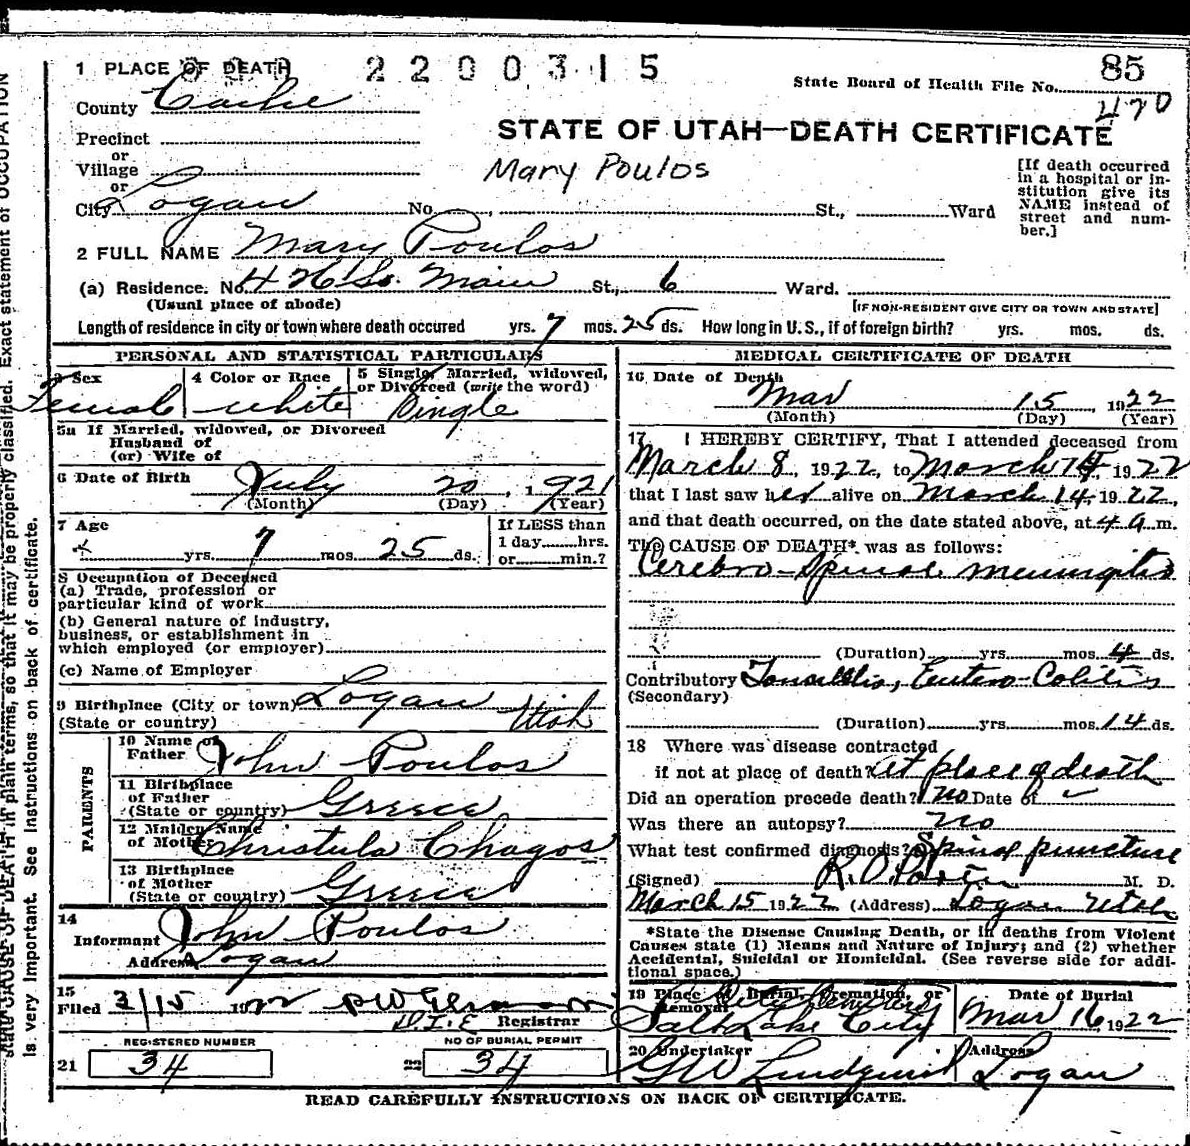 1 PLACE OF DEATH 2200315 85
State Board of Health File No.
County Cache 420
STATE OF UTAH—DEATH CERTIFICATE
Precinct
or
Village
or
Mary Poulos
[If death occurred in a hospital or institution give its NAME instead of street and number.]
City Logan No. , St., Ward
2 FULL NAME Mary Poulos
(a) Residence. No. So. Main St., 6 Ward.
(Usual place of abode) [IF NON-RESIDENT GIVE CITY OR TOWN AND STATE]
Length of residence in city or town where death occured yrs. 7 mos. 25 ds. How long in U. S., if of foreign birth? yrs. mos. ds.
PERSONAL AND STATISTICAL PARTICULARS
3 Sex Female
4 Color or Race white
5 Single, Married, widowed, or Divorced (write the word) Single
5a If Married, widowed, or Divorced
Husband of
(or) Wife of
6 Date of Birth July 20, 1921
(Month) (Day) (Year)
7 Age
yrs. 7 mos. 25 ds.
If LESS than
1 day hrs.
or min.?
8 Occupation of Deceased
(a) Trade, profession or
particular kind of work
(b) General nature of industry,
business, or establishment in
which employed (or employer)
(c) Name of Employer
9 Birthplace (City or town) Logan
(State or country) Utah
PARENTS
10 Name of
Father John Poulos
11 Birthplace
of Father
(State or country) Greece
12 Maiden Name
of Mother Christula Chagos
13 Birthplace
of Mother
(State or country) Greece
14
Informant John Poulos
Address Logan
15
Filed 3/15 1922
Registrar
REGISTERED NUMBER NO OF BURIAL PERMIT
21 34 22 34
MEDICAL CERTIFICATE OF DEATH
16 Date of Death
Mar 15 1922
(Month) (Day) (Year)
17 I HEREBY CERTIFY, That I attended deceased from
March 8, 1922, to March 14, 1922
that I last saw her alive on March 14, 1922,
and that death occurred, on the date stated above, at 4 a m.
The CAUSE OF DEATH* was as follows:
Cerebro-Spinal Meningitis
(Duration) yrs. mos. 4 ds.
Contributory Tonsillitis, Entero-Colitis
(Secondary)
(Duration) yrs. mos. 14 ds.
18 Where was disease contracted
if not at place of death? at place of death
Did an operation precede death? no Date of
Was there an autopsy? no
What test confirmed diagnosis? Spinal puncture
(Signed) R. O. Porter M. D.
March 15 1922 (Address) Logan Utah
*State the Disease Causing Death, or in deaths from Violent
Causes state (1) Means and Nature of Injury; and (2) whether
Accidental, Suicidal or Homicidal. (See reverse side for additional space.)
19 Place of Burial, Cremation, or Removal City Cemetery
Salt Lake City
Date of Burial
Mar 16, 1922
20 Undertaker
G W Lindquist
Address
Logan
READ CAREFULLY INSTRUCTIONS ON BACK OF CERTIFICATE.
CAUSE OF DEATH in plain terms, so that it may be properly classified. Exact statement of OCCUPATION
is very important. See instructions on back of certificate.